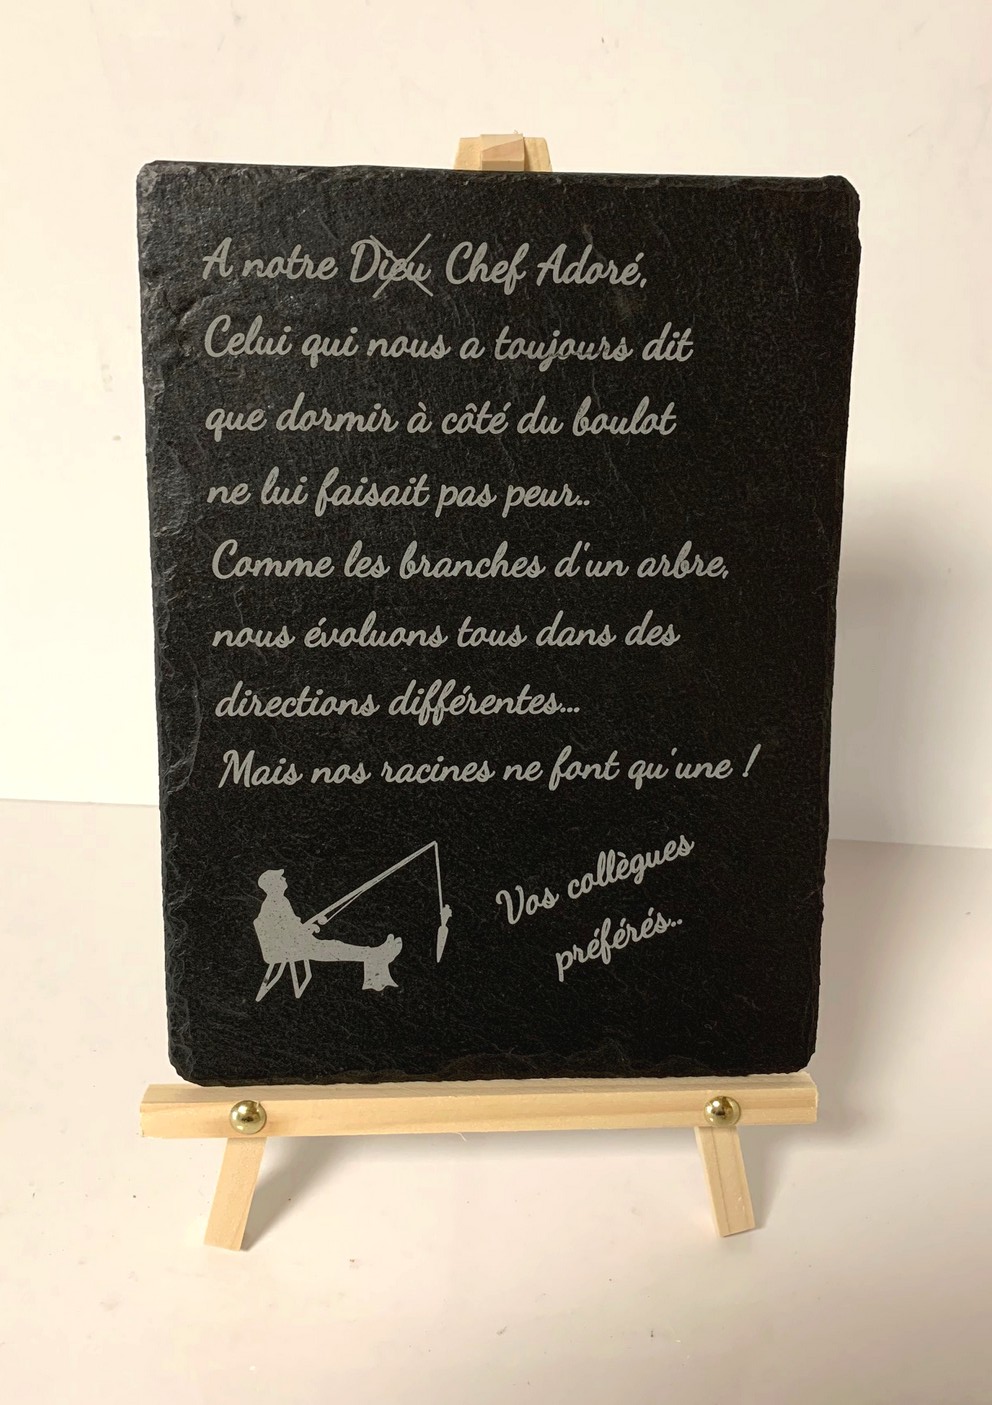 A notre Dieu Chef Adoré,
Celui qui nous a toujours dit
que dormir à côté du boulot
ne lui faisait pas peur..
Comme les branches d'un arbre,
nous évoluons tous dans des
directions différentes...
Mais nos racines ne font qu'une !
Vos collègues
préférés..